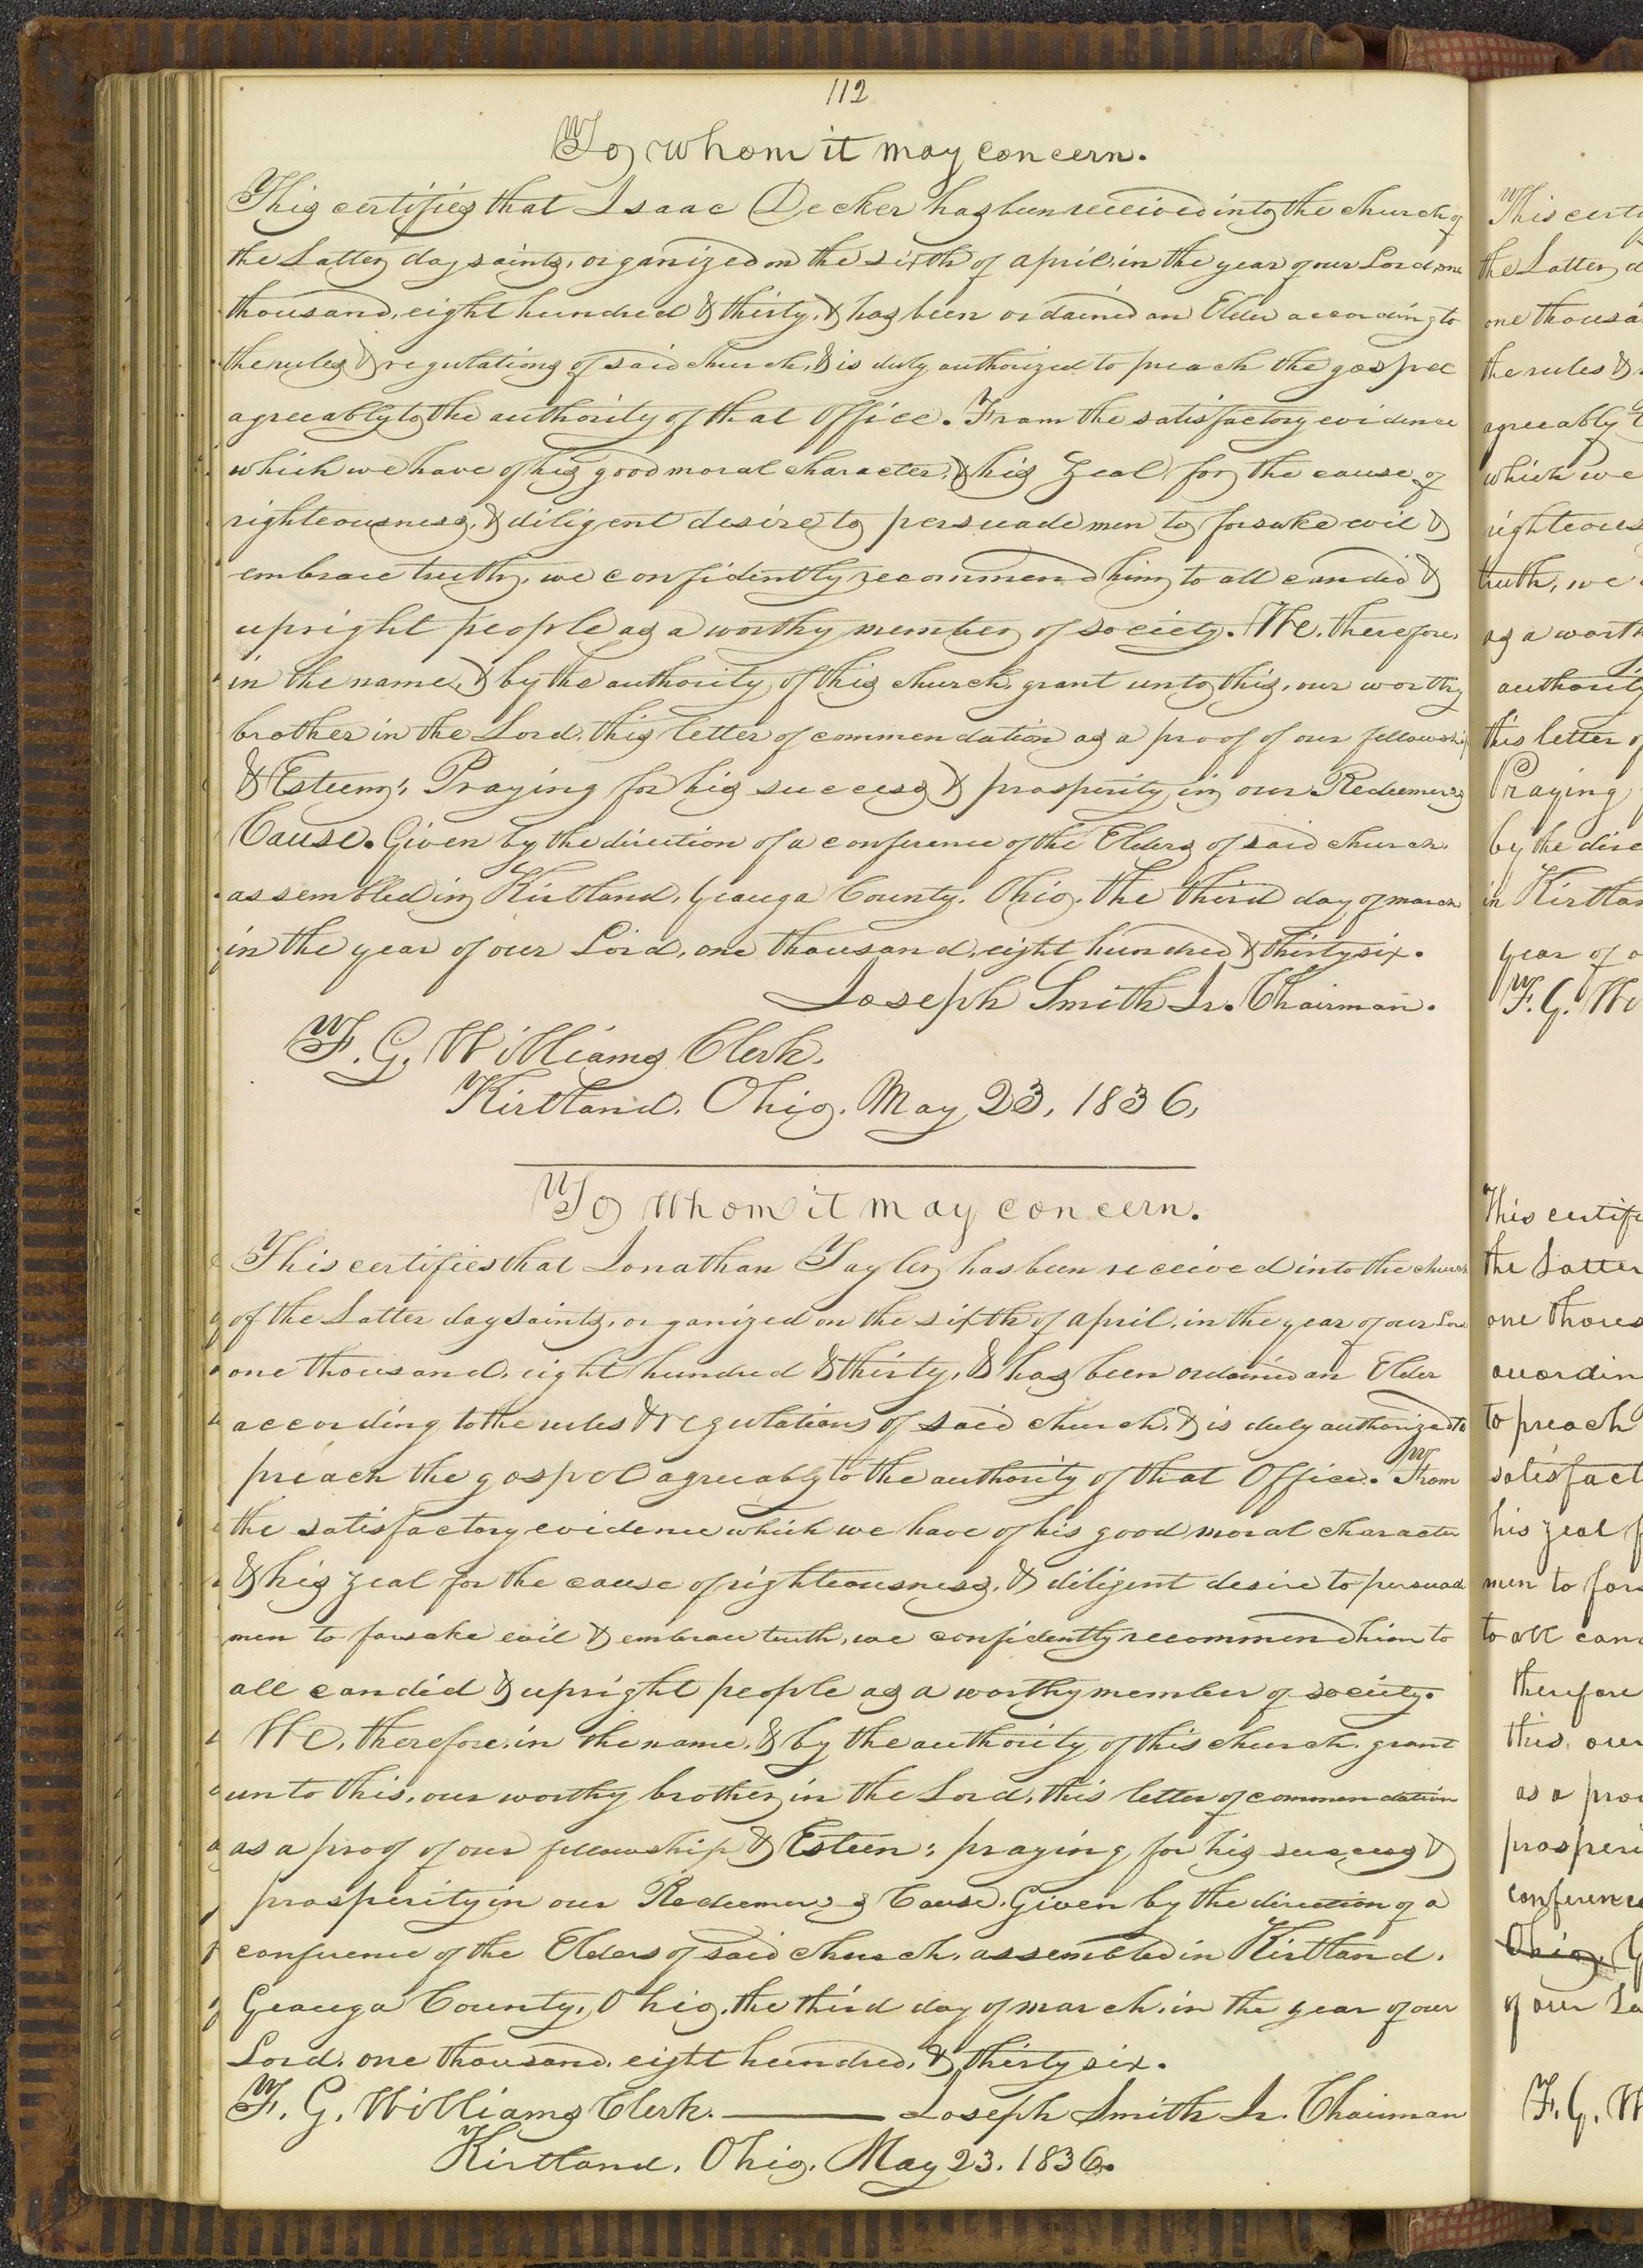 112
To whom it may concern.
This certifies that Isaac Decker has been received into the church of
the Latter day saints, organized on the sixth of april, in the year of our Lord, one
thousand, eight hundred & thirty, & has been ordained an Elder according to
the rules & regulations of said church, & is duly authorized to preach the gospel
agreeably to the authority of that Office. From the satisfactory evidence
which we have of his good moral character, & his zeal for the cause of
righteousness, & diligent desire to persuade men to forsake evil &
embrace truth, we confidently recommend him to all candid &
upright people as a worthy member of society. We, therefore,
in the name, & by the authority of this church, grant unto this, our worthy
brother in the Lord, this letter of commendation as a proof of our fellowship
& Esteem; Praying for his success & prosperity in our Redeemer's
Cause. Given by the direction of a conference of the Elders of said church,
assembled in Kirtland, Geauga County, Ohio, the third day of march
in the year of our Lord, one thousand, eight hundred & thirty six.
Joseph Smith Jr. Chairman.
F. G. Williams Clerk.
Kirtland, Ohio, May 23, 1836,
To whom it may concern.
This certifies that Jonathan Tayler has been received into the church
of the Latter day saints, organized on the sixth of april, in the year of our Lord
one thousand, eight hundred & thirty, & has been ordained an Elder
according to the rules & regulations of said church, & is duly authorized to
preach the gospel agreeably to the authority of that Office. From
the satisfactory evidence which we have of his good moral character
& his zeal for the cause of righteousness, & diligent desire to persuade
men to forsake evil & embrace truth, we confidently recommend him to
all candid & upright people as a worthy member of society.
We, therefore, in the name, & by the authority of this church, grant
unto this, our worthy brother in the Lord, this letter of commendation
as a proof of our fellowship & Esteem; praying for his success &
prosperity in our Redeemer's Cause. Given by the direction of a
conference of the Elders of said church, assembled in Kirtland,
Geauga County, Ohio, the third day of march, in the year of our
Lord, one thousand, eight hundred, & thirty six.
F. G. Williams Clerk. Joseph Smith Jr. Chairman
Kirtland, Ohio, May 23, 1836.
This certi
the Latter d
one thousa
the rules &
agreeably t
which we
righteous
truth, we
as a worth
authority
this letter of
Praying
by the dire
in Kirtlan
year of o
F. G. Wi
This certifi
the Latter
one thous
accordin
to preach
satisfact
his zeal f
men to fors
to all can
therefore
this, our
as a proo
prosperi
conference
Ohio, G
of our Lo
F. G. W